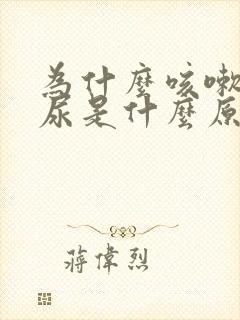 為什麼咳嗽
尿是什麼原
蔣偉烈